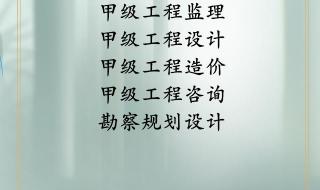 甲级工程监理
甲级工程设计
甲级工程造价
甲级工程咨询
勘察规划设计